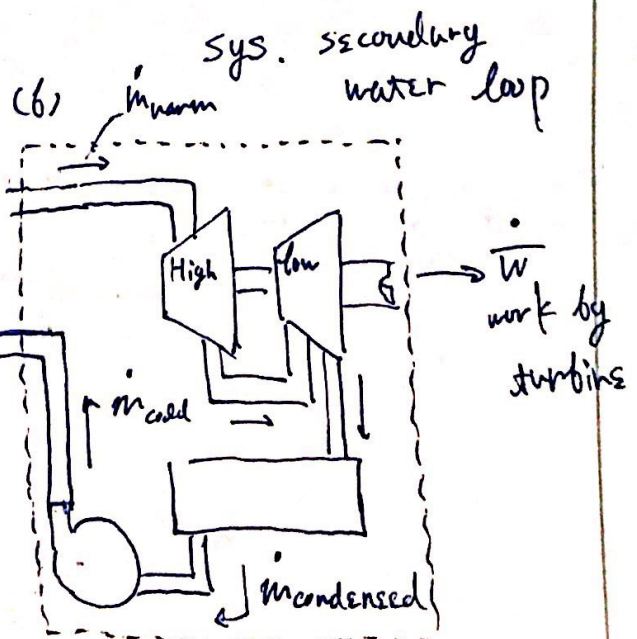 sys. secondary
water loop
(b)
ṁwarm
High
low
Ẇ
work by
turbine
ṁcold
ṁcondensed